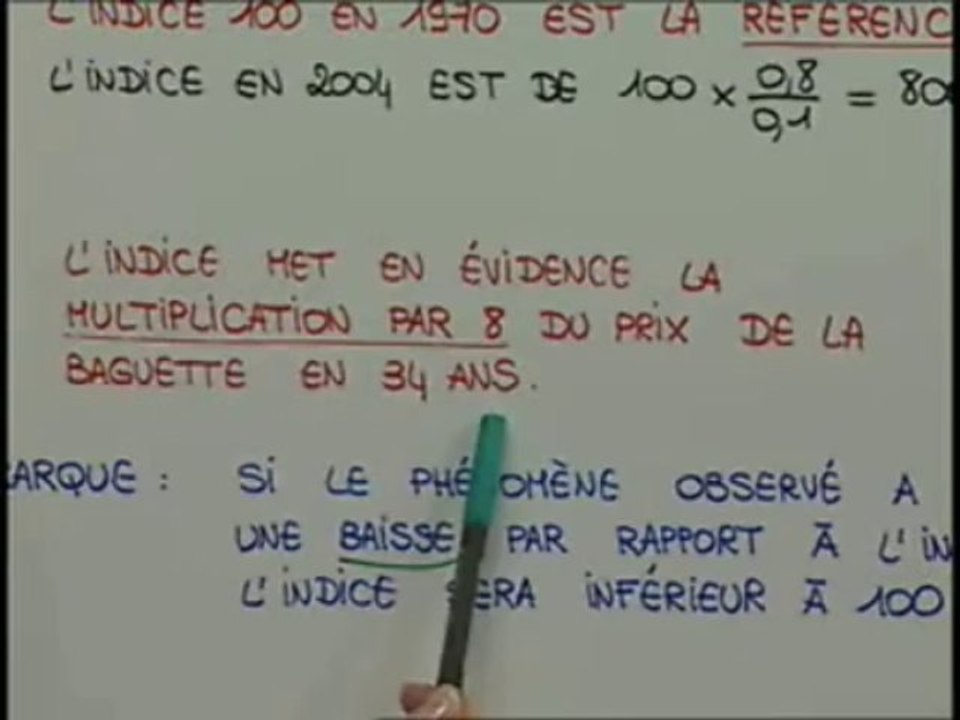 L'INDICE 100 EN 1970 EST LA RÉFÉRENC
L'INDICE EN 2004 EST DE 100 × 0,8/0,1 = 800
L'INDICE MET EN ÉVIDENCE LA
MULTIPLICATION PAR 8 DU PRIX DE LA
BAGUETTE EN 34 ANS.
ARQUE : SI LE PHÉNOMÈNE OBSERVÉ A
UNE BAISSE PAR RAPPORT À L'IN
L'INDICE SERA INFÉRIEUR À 100